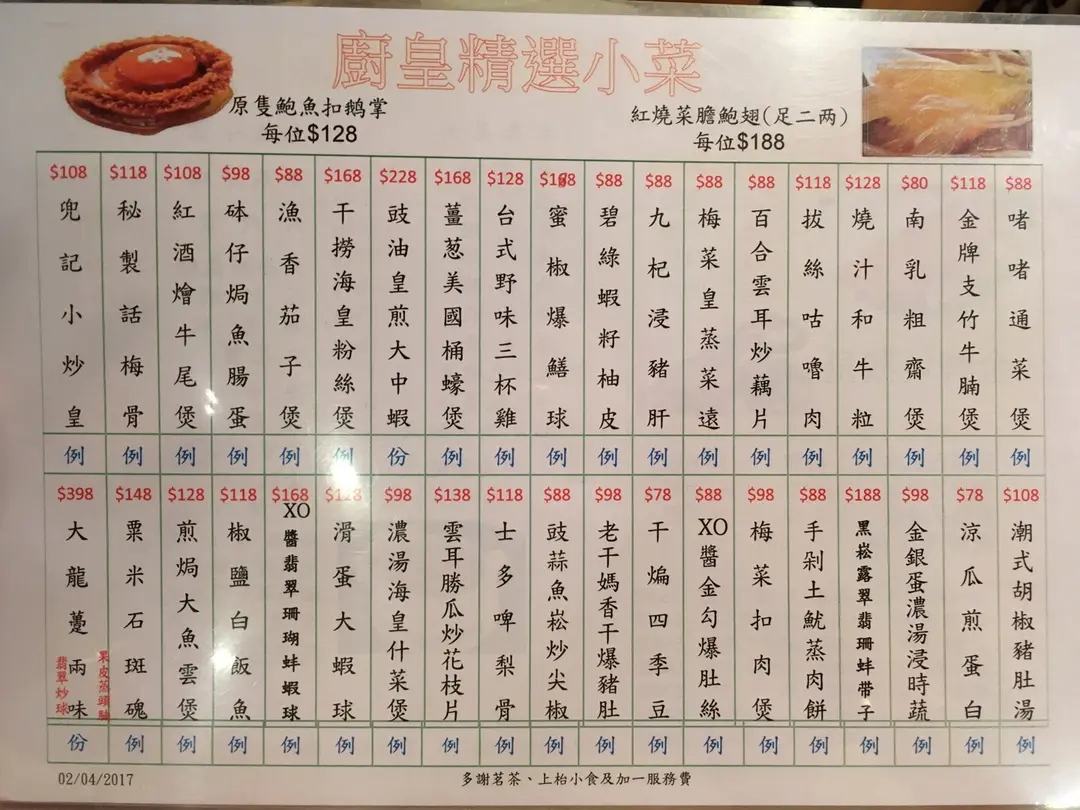 廚皇精選小菜
原隻鮑魚扣鹅掌
每位$128
紅燒菜膽鮑翅(足二两)
每位$188
$108
兜記小炒皇
例
$118
秘製話梅骨
例
$108
紅酒燴牛尾煲
例
$98
砵仔焗魚腸蛋
例
$88
漁香茄子煲
例
$168
干撈海皇粉絲煲
例
$228
豉油皇煎大中蝦
份
$168
薑葱美國桶蠔煲
例
$128
台式野味三杯雞
例
蜜椒爆鱔球
例
$88
碧綠蝦籽柚皮
例
$88
九杞浸豬肝
例
$88
梅菜皇蒸菜遠
例
$88
百合雲耳炒藕片
例
$118
拔絲咕嚕肉
例
$128
燒汁和牛粒
例
$80
南乳粗齋煲
例
$118
金牌支竹牛腩煲
例
$88
啫啫通菜煲
例
$398
大龍躉兩味
翡翠炒球
果皮蒸頭腩
份
$148
粟米石斑塊
例
$128
煎焗大魚雲煲
例
$118
椒鹽白飯魚
例
$168
XO醬翡翠珊瑚蚌蝦球
例
$128
滑蛋大蝦球
例
$98
濃湯海皇什菜煲
例
$138
雲耳勝瓜炒花枝片
例
$118
士多啤梨骨
例
$88
豉蒜魚崧炒尖椒
例
$98
老干媽香干爆豬肚
例
$78
干煸四季豆
例
$88
XO醬金勾爆肚絲
例
$98
梅菜扣肉煲
例
$88
手剁土魷蒸肉餅
例
$188
黑崧露翠翡珊蚌带子
例
$98
金銀蛋濃湯浸時蔬
例
$78
涼瓜煎蛋白
例
$108
潮式胡椒豬肚湯
例
02/04/2017
多謝茗茶、上枱小食及加一服務費